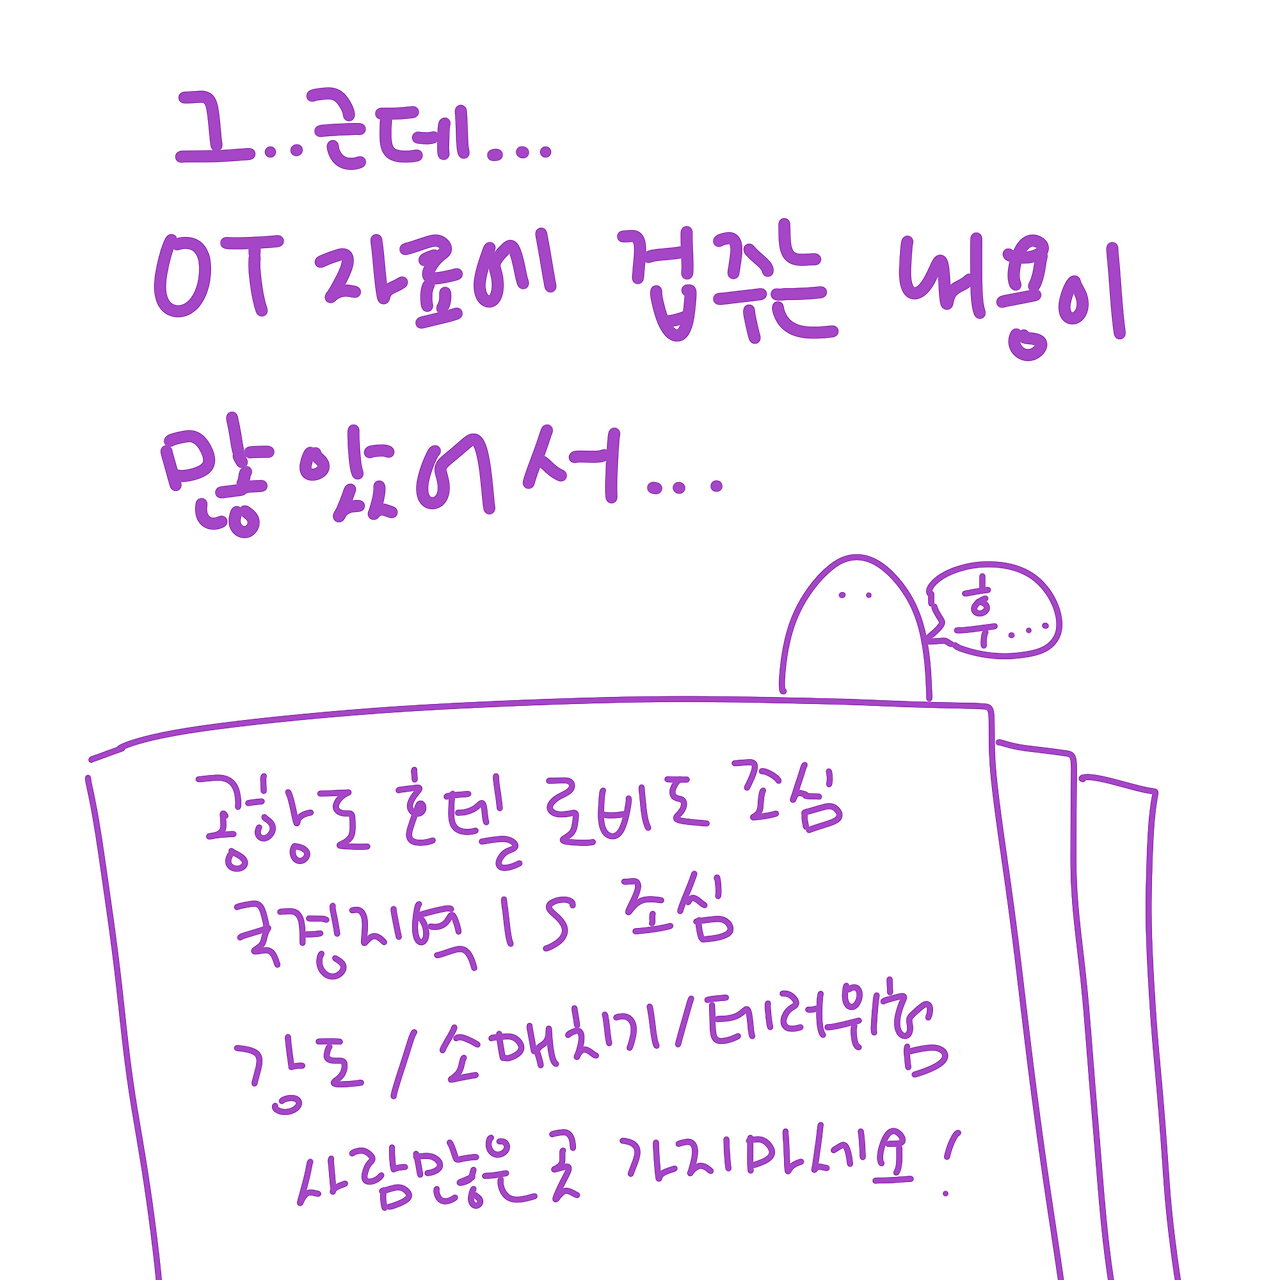 그..근데...
OT 자료에 겁주는 내용이
많았어서...
후...
공항도 호텔 로비도 조심
국경지역 IS 조심
강도/소매치기/테러위험
사람많은 곳 가지마세요!